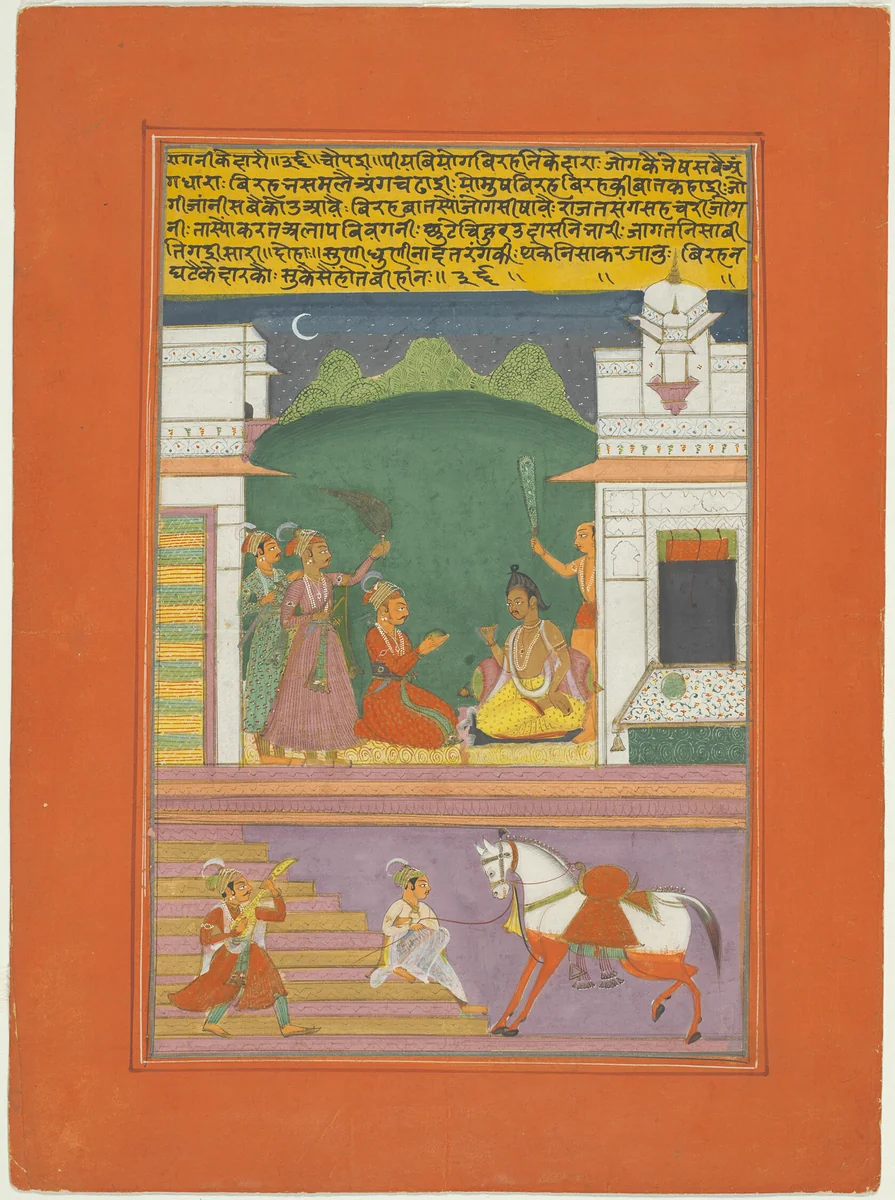 रागनी केदारौ॥३६॥चौपइ॥पीय बियोग बिरहनि केदाराः जोग कै नेष सबै अं
ग धाराः बिरह नसम लै अंग चढाइः बिरह बिरह की बात कहाइः जो
गी जांनी सबै कोउ आवैः बिरह बात स्यो जोग सीषावैः राजत संग सहचरी जोग
नीः तास्यौ करत अलाप बिवगनीः छुटे चिहुर उदासनि नारीः जागत निसा बी
ति गइ सारी॥दोहाः॥ तरंग कीः थकै निसाकर जानुः बिरहन
घटै केदारकोः सु कैसै होत बीहांनः॥३६॥